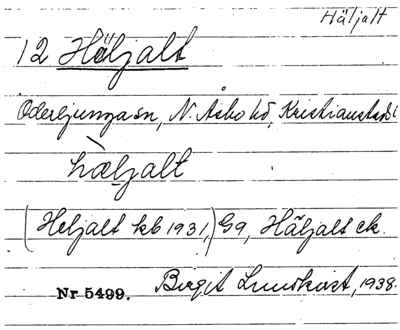 Häljalt
12 Häljalt
Oderljunga sn, N. Åsbo hd, Kristianstads l
hæljalt
(Heljalt kb 1931,) G9, Häljalt ek.
Nr 5499. Birgit Lundkvist, 1938.